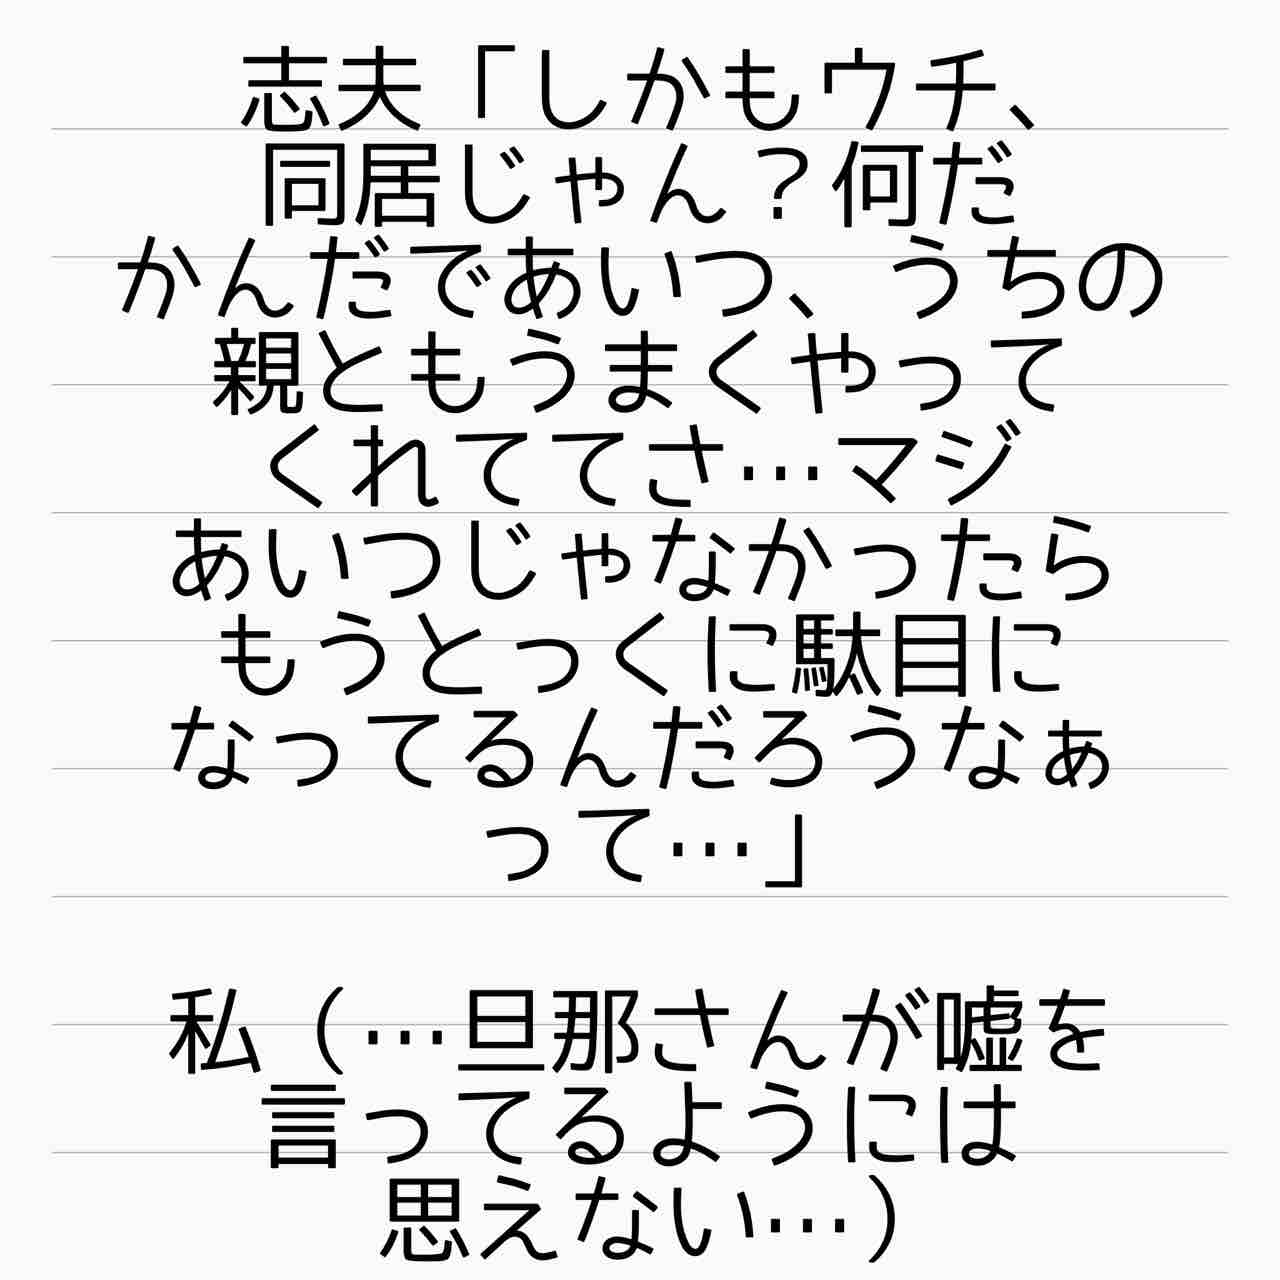 志夫「しかもウチ、
同居じゃん？何だ
かんだであいつ、うちの
親ともうまくやって
くれててさ…マジ
あいつじゃなかったら
もうとっくに駄目に
なってるんだろうなぁ
って…」
私（…旦那さんが嘘を
言ってるようには
思えない…）